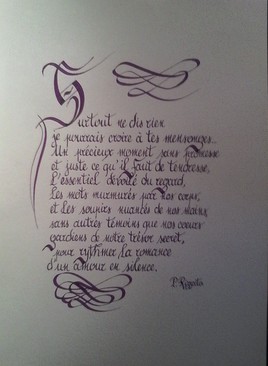 Surtout ne dis rien
je pourrais croire à tes mensonges...
Un précieux moment sans promesse
et juste ce qu'il faut de tendresse,
L'essentiel dévoilé du regard,
Les mots murmurés par nos corps,
et les soupirs nuancés de nos mains,
sans autres témoins que nos coeurs
gardiens de notre trésor secret,
pour rythmer la romance
d'un amour en silence.